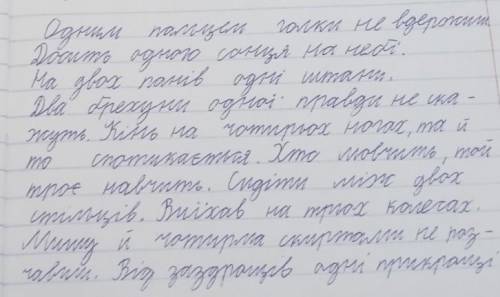 Одним пальцем голки не вдержиш.
Досить одного сонця на небі.
На двох панів одні штани.
Два брехуни одної правди не ска-
жуть. Кінь на чотирьох ногах, та й
то спотикається. Хто мовчить, той
троє навчить. Сидіти між двох
стільців. Виїхав на трьох колесах.
Мишу й чотирма скиртами не роз-
чавиш. Від заздрощів одні прикрощі